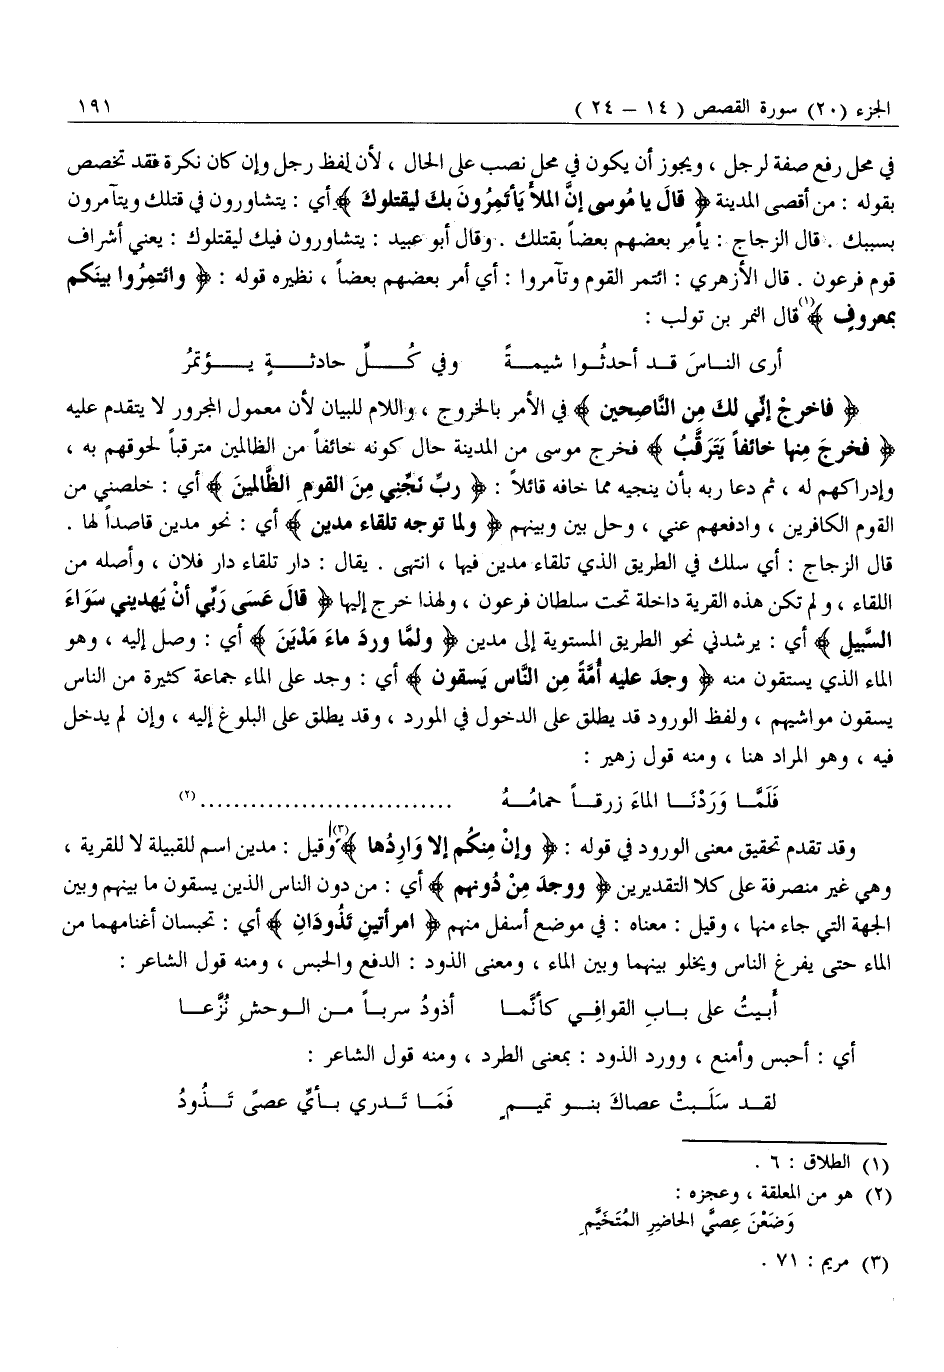 الجزء (٢٠) سورة القصص ( ١٤ – ٢٤ ) ١٩١
في محل رفع صفة لرجل ، ويجوز أن يكون في محل نصب على الحال ، لأن لفظ رجل وإن كان نكرة فقد تخصص
بقوله : من أقصى المدينة ﴿ قالَ يا مُوسى إنَّ الملأ يَأتمِرُونَ بكَ ليقتلوكَ ﴾ أي : يتشاورون في قتلك ويتآمرون
بسببك . قال الزجاج : يأمر بعضهم بعضاً بقتلك . وقال أبو عبيد : يتشاورون فيك ليقتلوك : يعني أشراف
قوم فرعون . قال الأزهري : ائتمر القوم وتآمروا : أي أمر بعضهم بعضاً ، نظيره قوله : ﴿ وائتمِرُوا بينَكم
بمعروفٍ ﴾(١) قال النمر بن تولب :
أرى الناسَ قد أحدثُوا شيمةً وفي كُلِّ حادثةٍ يؤتمرُ
﴿ فاخرجْ إنّي لكَ مِن النَّاصحين ﴾ في الأمر بالخروج ، واللام للبيان لأن معمول المجرور لا يتقدم عليه
﴿ فخرجَ مِنها خائفاً يَتَرَقَّبُ ﴾ فخرج موسى من المدينة حال كونه خائفاً من الظالمين مترقباً لحوقهم به ،
وإدراكهم له ، ثم دعا ربه بأن ينجيه مما خافه قائلاً : ﴿ ربِّ نَجِّني مِنَ القومِ الظَّالمينَ ﴾ أي : خلصني من
القوم الكافرين ، وادفعهم عني ، وحل بين وبينهم ﴿ ولما توجه تلقاء مدين ﴾ أي : نحو مدين قاصداً لها .
قال الزجاج : أي سلك في الطريق الذي تلقاء مدين فيها ، انتهى . يقال : دار تلقاء دار فلان ، وأصله من
اللقاء ، ولم تكن هذه القرية داخلة تحت سلطان فرعون ، ولهذا خرج إليها ﴿ قالَ عَسَى رَبِّي أنْ يَهديني سَوَاءَ
السَّبيلِ ﴾ أي : يرشدني نحو الطريق المستوية إلى مدين ﴿ ولمَّا وردَ ماءَ مَدْيَنَ ﴾ أي : وصل إليه ، وهو
الماء الذي يستقون منه ﴿ وجدَ عليه أُمَّةً مِن النَّاس يَسقون ﴾ أي : وجد على الماء جماعة كثيرة من الناس
يسقون مواشيهم ، ولفظ الورود قد يطلق على الدخول في المورد ، وقد يطلق على البلوغ إليه ، وإن لم يدخل
فيه ، وهو المراد هنا ، ومنه قول زهير :
فَلَمَّا وَرَدْنَا الماءَ زرقاً حمامُهُ ..............................(٢)
وقد تقدم تحقيق معنى الورود في قوله : ﴿ وإنْ مِنكُم إلا وَارِدُها ﴾(٣) وقيل : مدين اسم للقبيلة لا للقرية ،
وهي غير منصرفة على كلا التقديرين ﴿ ووجدَ مِنْ دُونهم ﴾ أي : من دون الناس الذين يسقون ما بينهم وبين
الجهة التي جاء منها ، وقيل : معناه : في موضع أسفل منهم ﴿ امرأتينِ تَذُودَانِ ﴾ أي : تحبسان أغنامهما من
الماء حتى يفرغ الناس ويخلو بينهما وبين الماء ، ومعنى الذود : الدفع والحبس ، ومنه قول الشاعر :
أَبيتُ على بابِ القوافِي كأنَّما أذودُ سرباً من الوحشِ نُزَّعا
أي : أحبس وأمنع ، وورد الذود : بمعنى الطرد ، ومنه قول الشاعر :
لقد سَلَبتْ عصاكَ بنو تميمٍ فَمَا تَدري بأيِّ عصىً تَذُودُ
(١) الطلاق : ٦ .
(٢) هو من المعلقة ، وعجزه :
وَضَعْنَ عِصيَّ الحاضِرِ المُتَخَيَّمِ
(٣) مريم : ٧١ .